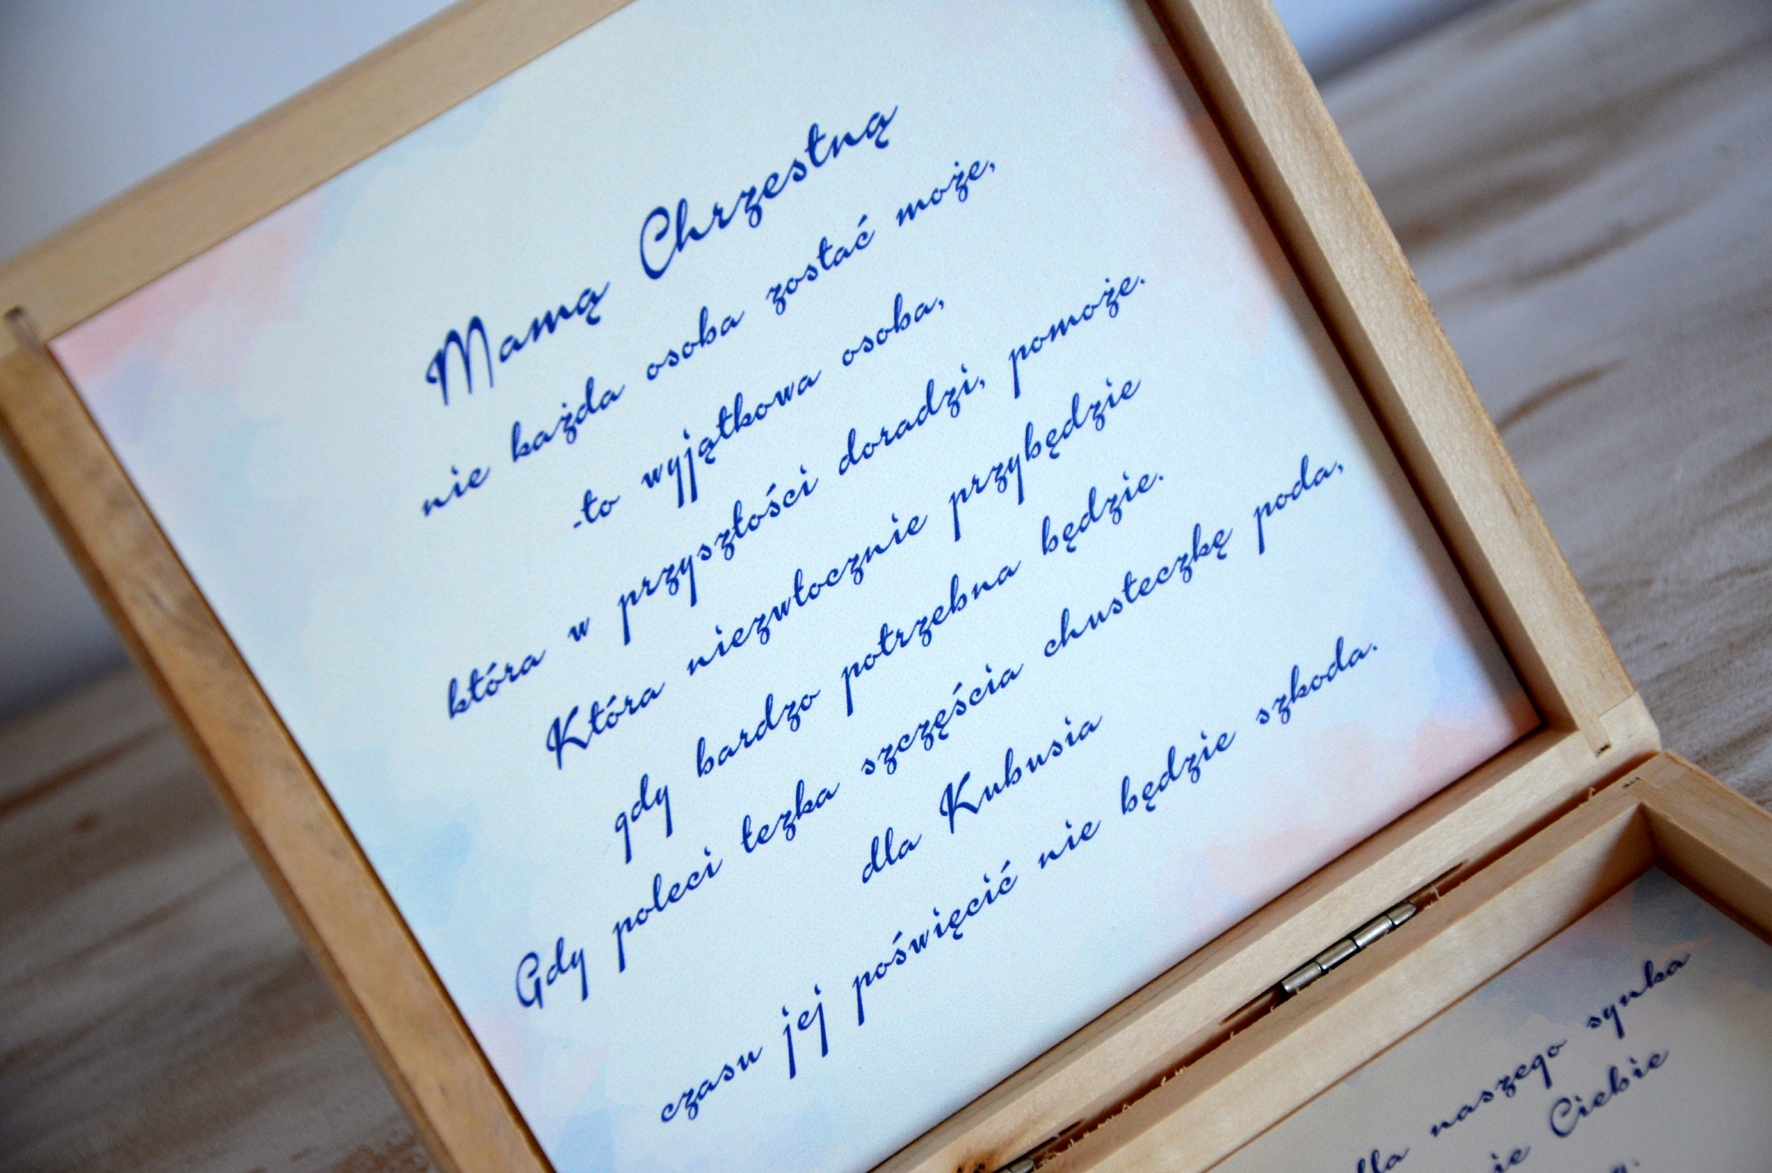 Mamą Chrzestną
nie każda osoba zostać może,
-to wyjątkowa osoba,
która w przyszłości doradzi, pomoże.
Która niezwłocznie przybędzie
gdy bardzo potrzebna będzie.
Gdy poleci łezka szczęścia chusteczkę poda,
dla Kubusia
czasu jej poświęcić nie będzie szkoda.
dla naszego synka
Ciebie